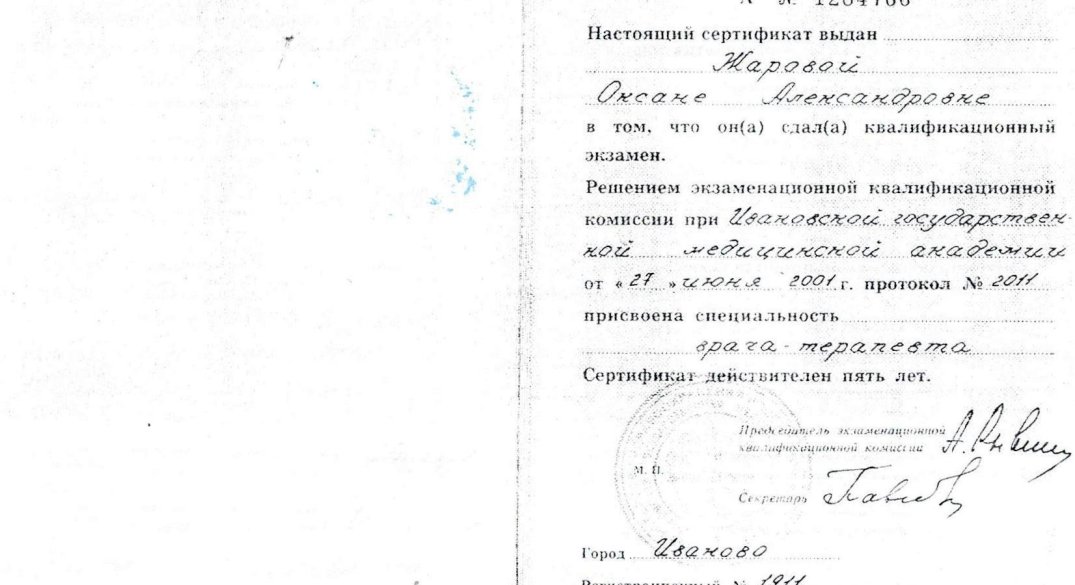 А № 1264766
Настоящий сертификат выдан
Жаровой
Оксане Александровне
в том, что он(а) сдал(а) квалификационный
экзамен.
Решением экзаменационной квалификационной
комиссии при Ивановской государствен-
ной медицинской академии
от «27» июня 2001 г. протокол № 2011
присвоена специальность
врача-терапевта
Сертификат действителен пять лет.
Председатель экзаменационной
квалификационной комиссии
М. П.
Секретарь
Город Иваново
Регистрационный № 1911